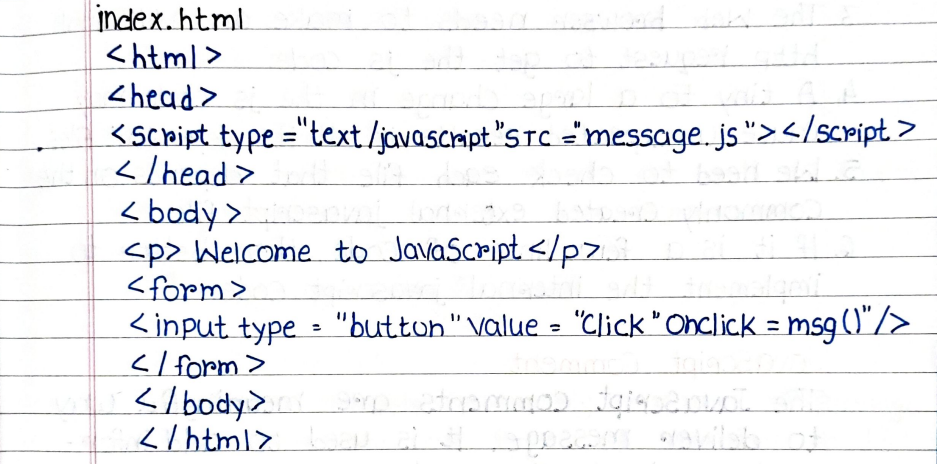 index.html
<html>
<head>
<script type ="text/javascript" src ="message.js"></script>
</head>
<body>
<p> Welcome to JavaScript </p>
<form>
<input type = "button" value = "Click" Onclick = msg()"/>
</form>
</body>
</html>